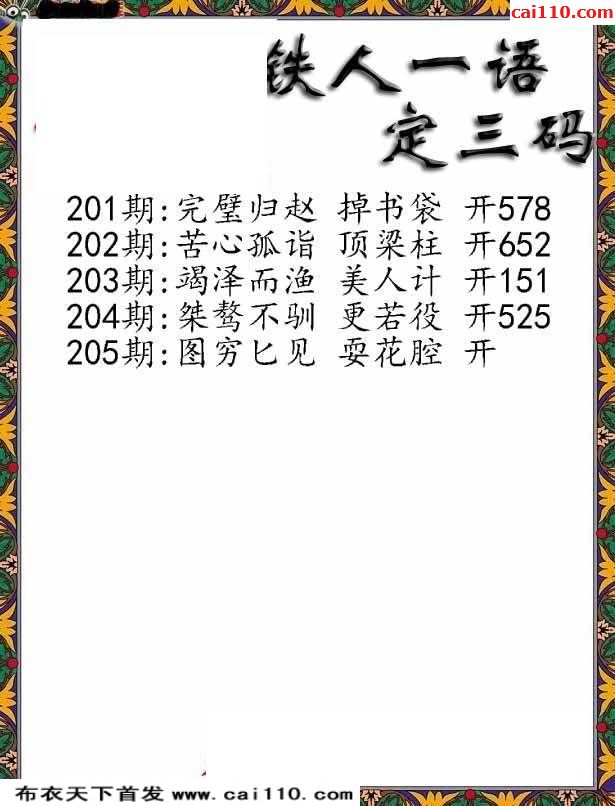 cai110.com
铁人一语
定三码
201期:完璧归赵 掉书袋 开578
202期:苦心孤诣 顶梁柱 开652
203期:竭泽而渔 美人计 开151
204期:桀骜不驯 更若役 开525
205期:图穷匕见 耍花腔 开
布衣天下首发 www.cai110.com